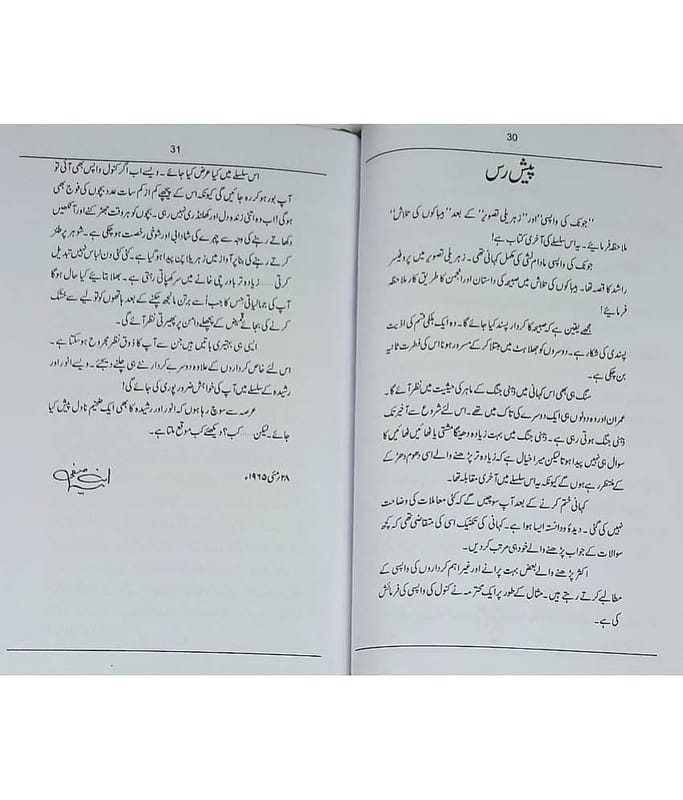 30
پیش رس
”جونک کی واپسی“ اور ”زہریلی تصویر“ کے بعد ”بیباکوں کی تلاش“
ملاحظہ فرمائیے۔ یہ اس سلسلے کی آخری کتاب ہے!
جونک کی واپسی مادام نشی کی مکمل کہانی تھی۔ زہریلی تصویر میں پروفیسر
راشد کا قصہ تھا۔ بیباکوں کی تلاش میں صبیحہ کی داستان اور انجمن کا طریق کار ملاحظہ
فرمائیے!
مجھے یقین ہے کہ صبیحہ کا کردار پسند کیا جائے گا۔ وہ ایک ہلکی قسم کی اذیت
پسندی کی شکار ہے۔ دوسروں کو جھلاہٹ میں مبتلا کر کے مسرور ہونا اس کی فطرت ثانیہ
بن چکی ہے۔
سنگ ہی بھی اس کہانی میں ذہنی جنگ کے ماہر کی حیثیت میں نظر آئے گا۔
عمران اور وہ دونوں ہی ایک دوسرے کی تاک میں تھے۔ اس لئے شروع سے آخر تک
ذہنی جنگ ہوتی رہی ہے۔ ذہنی جنگ میں بہت زیادہ دھینگا مشتی یا ٹھائیں ٹھائیں کا
سوال ہی نہیں پیدا ہوتا لیکن میرا خیال ہے کہ زیادہ تر پڑھنے والے اسی دھوم دھڑ کے
کے منتظر رہے ہوں گے کیونکہ یہ اس سلسلے میں آخری مقابلہ تھا۔
کہانی ختم کرنے کے بعد آپ سوچیں گے کہ کئی معاملات کی وضاحت
نہیں کی گئی۔ دیدۂ و دانستہ ایسا ہوا ہے۔ کہانی کی تکنیک اسی کی متقاضی تھی کہ کچھ
سوالات کے جواب پڑھنے والے خود ہی مرتب کر دیں۔
اکثر پڑھنے والے بعض بہت پرانے اور غیر اہم کرداروں کی واپسی کے
مطالبے کرتے رہتے ہیں۔ مثال کے طور پر ایک محترمہ نے کنول کی واپسی کی فرمائش
کی ہے۔
31
اس سلسلے میں کیا عرض کیا جائے۔ ویسے اب اگر کنول واپس بھی آئی تو
آپ بور ہو کر رہ جائیں گی کیونکہ اس کے پیچھے کم از کم سات عدد بچوں کی فوج بھی
ہو گی! اب وہ اتنی زندہ دل اور کھلنڈری نہیں رہی۔ بچوں کو ہر وقت جھڑکنے اور آنکھیں
دکھاتے رہنے کی وجہ سے چہرے کی شادابی اور شوخی رخصت ہو چکی ہے۔ شوہر پر طنز
کرتے رہنے کی بنا پر آواز میں زہریلا پن پیدا ہو گیا ہے۔ کئی کئی دن لباس نہیں تبدیل
کرتی...... زیادہ تر باورچی خانے میں سر کھپاتی رہتی ہے۔ بھلا بتایئے کیا حال ہو گا
آپ کی جمالیاتی حس کا جب اُسے برتن مانجھ چکنے کے بعد ہاتھوں کو تولیے سے خشک
کرنے کی بجائے قمیض کے پچھلے دامن پر پھیرتی نظر آئے گی۔
ایسی ہی بہتیری باتیں ہیں جن سے آپ کا ذوق نظر مجروح ہو سکتا ہے۔
اس لئے خاص کرداروں کے علاوہ دوسرے کردار نئے ہی چلنے دیجئے۔ ویسے انور اور
رشیدہ کے سلسلے میں آپ کی خواہش ضرور پوری کی جائے گی!
عرصہ سے سوچ رہا ہوں کہ انور اور رشیدہ کا بھی ایک ضخیم ناول پیش کیا
جائے۔ لیکن...... کب؟ دیکھئے کب موقع ملتا ہے۔
ابن صفی
۲۸؍ مئی ۱۹۶۵ء